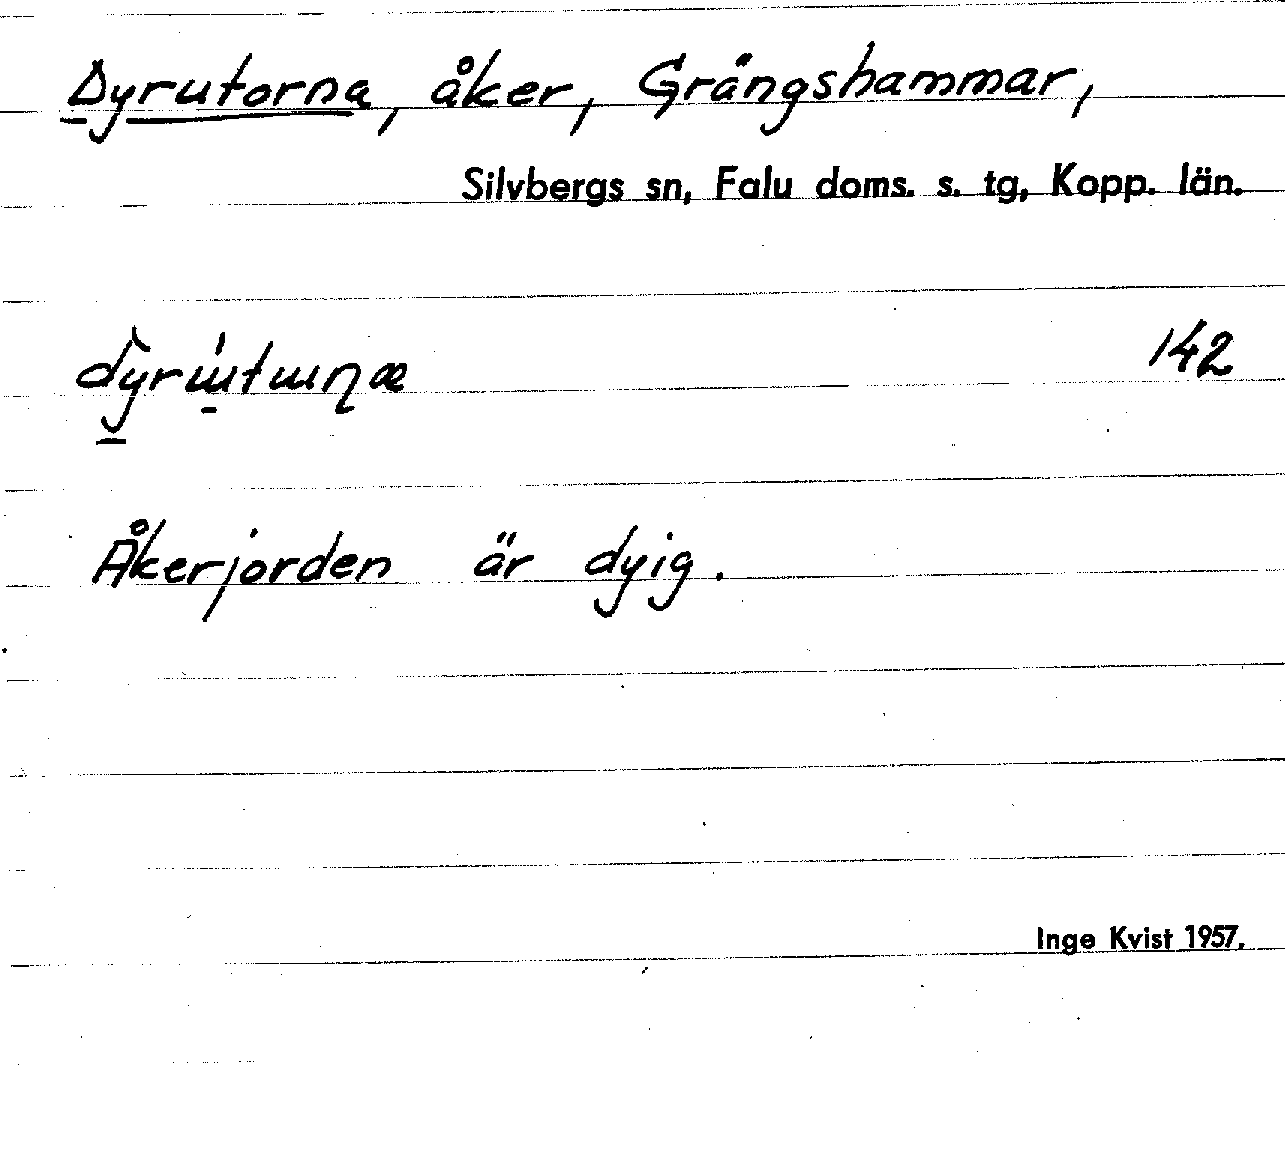 Dyrutorna, åker, Grängshammar,
Silvbergs sn, Falu doms. s. tg, Kopp. län.
142
Åkerjorden är dyig.
Inge Kvist 1957.